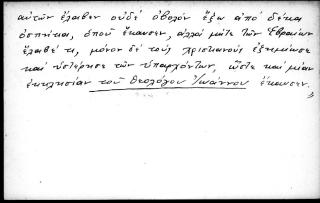 αὐτῶν ἔλαβεν οὐδὲ ὀβολὸν ἔξω ἀπὸ δέκα
ὁσπίτια, ὁποῦ ἔκαυσεν, ἀλλὰ μήτε τῶν Ἑβραίων
ἔλαβέ τι, μόνον δὲ τοὺς χριστιανοὺς ἐξημίωσε
καὶ ὑστέρησε τῶν ὑπαρχόντων, ὥστε καὶ μίαν
ἐκκλησίαν τοῦ Θεολόγου Ἰωάννου ἔκαυσεν.